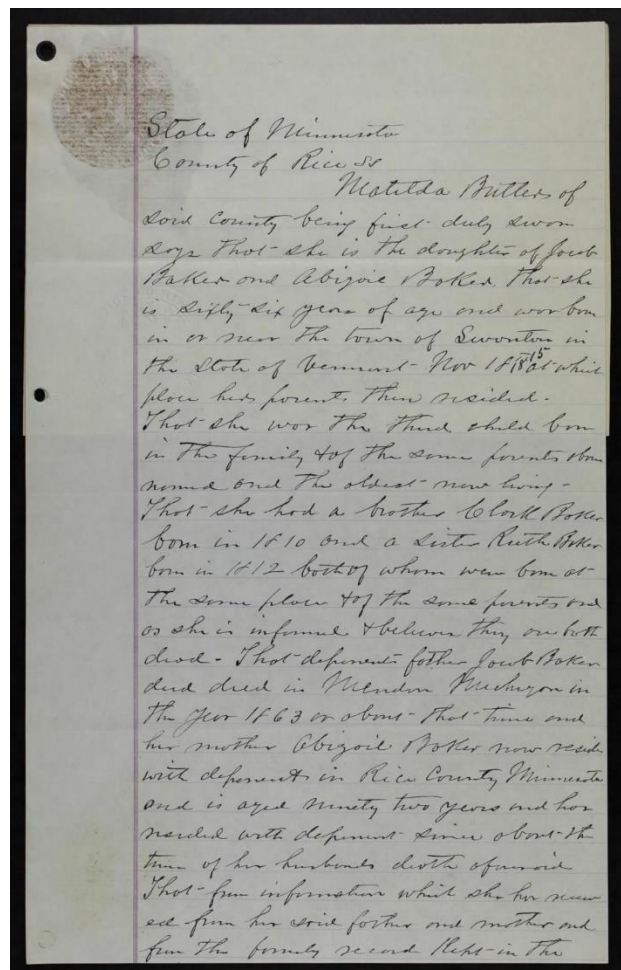 State of Minnesota
County of Rice SS
Matilda Butlers of
said County being first duly sworn
says that she is the daughter of Jacob
Baker and Abigail Baker. That she
is sixty six years of age and was born
in or near the town of Swanton in
the State of Vermont Nov 1815 at which
place her parents then resided.
That she was the third child born
in the family & of the same parents above
named and the oldest now living -
That she had a brother Clark Baker
born in 1810 and a sister Ruth Baker
born in 1812 both of whom were born at
the same place & of the same parents and
as she is informed & believes they are both
dead - That deponents father Jacob Baker
died in Mendon Michigan in
the year 1863 or about that time and
her mother Abigail Baker now resides
with deponent in Rice County Minnesota
and is aged ninety two years and has
resided with deponent since about the
time of her husbands death aforesaid
That from information which she has receiv
ed from her said father and mother and
from the family record kept in the